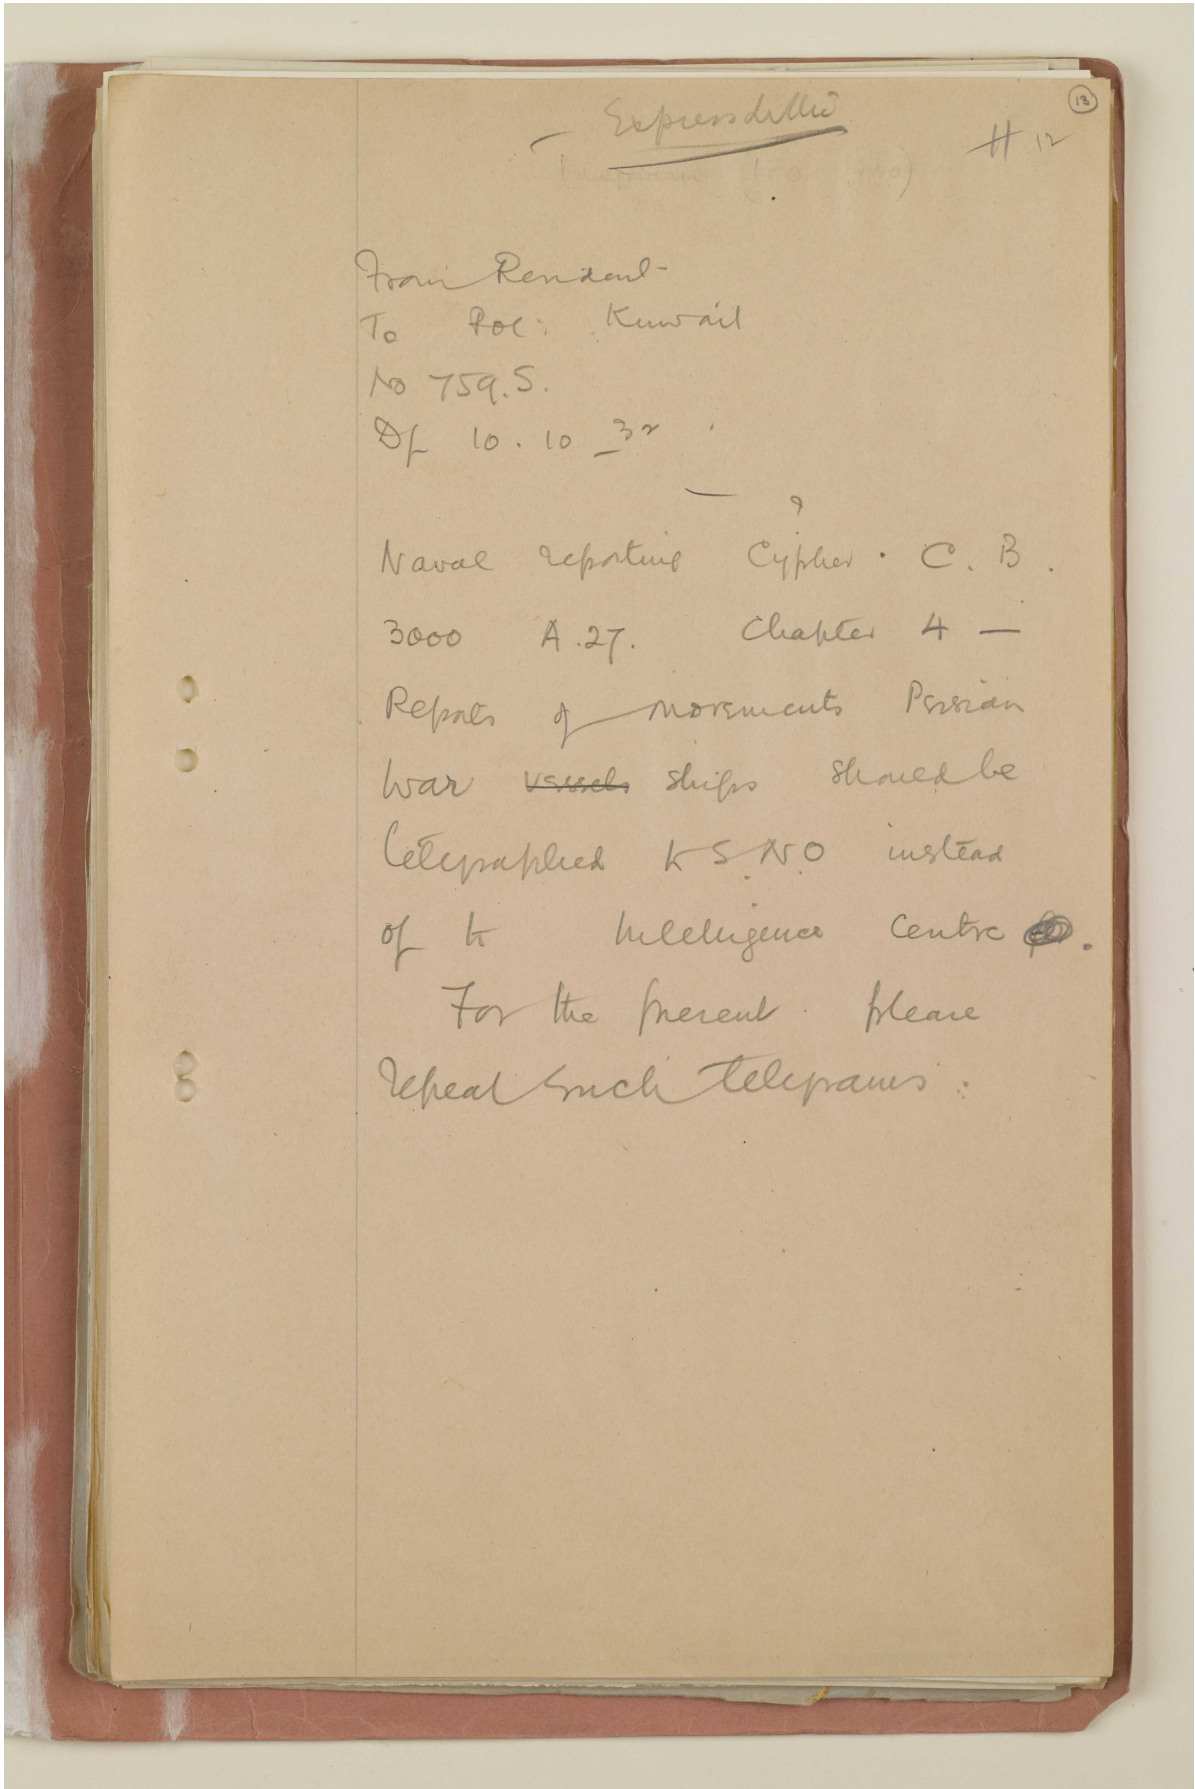 13
Express letter
# 12
From Resident
To Pol: Kuwait
No 759.S.
Dt 10.10_32
?
Naval reporting Cypher. C.B.
3000 A.27. Chapter 4 —
Reports of movements Persian
War vessels ships should be
telegraphed to S.N.O instead
of to Intelligence Centre .
For the present please
repeat such telegrams.